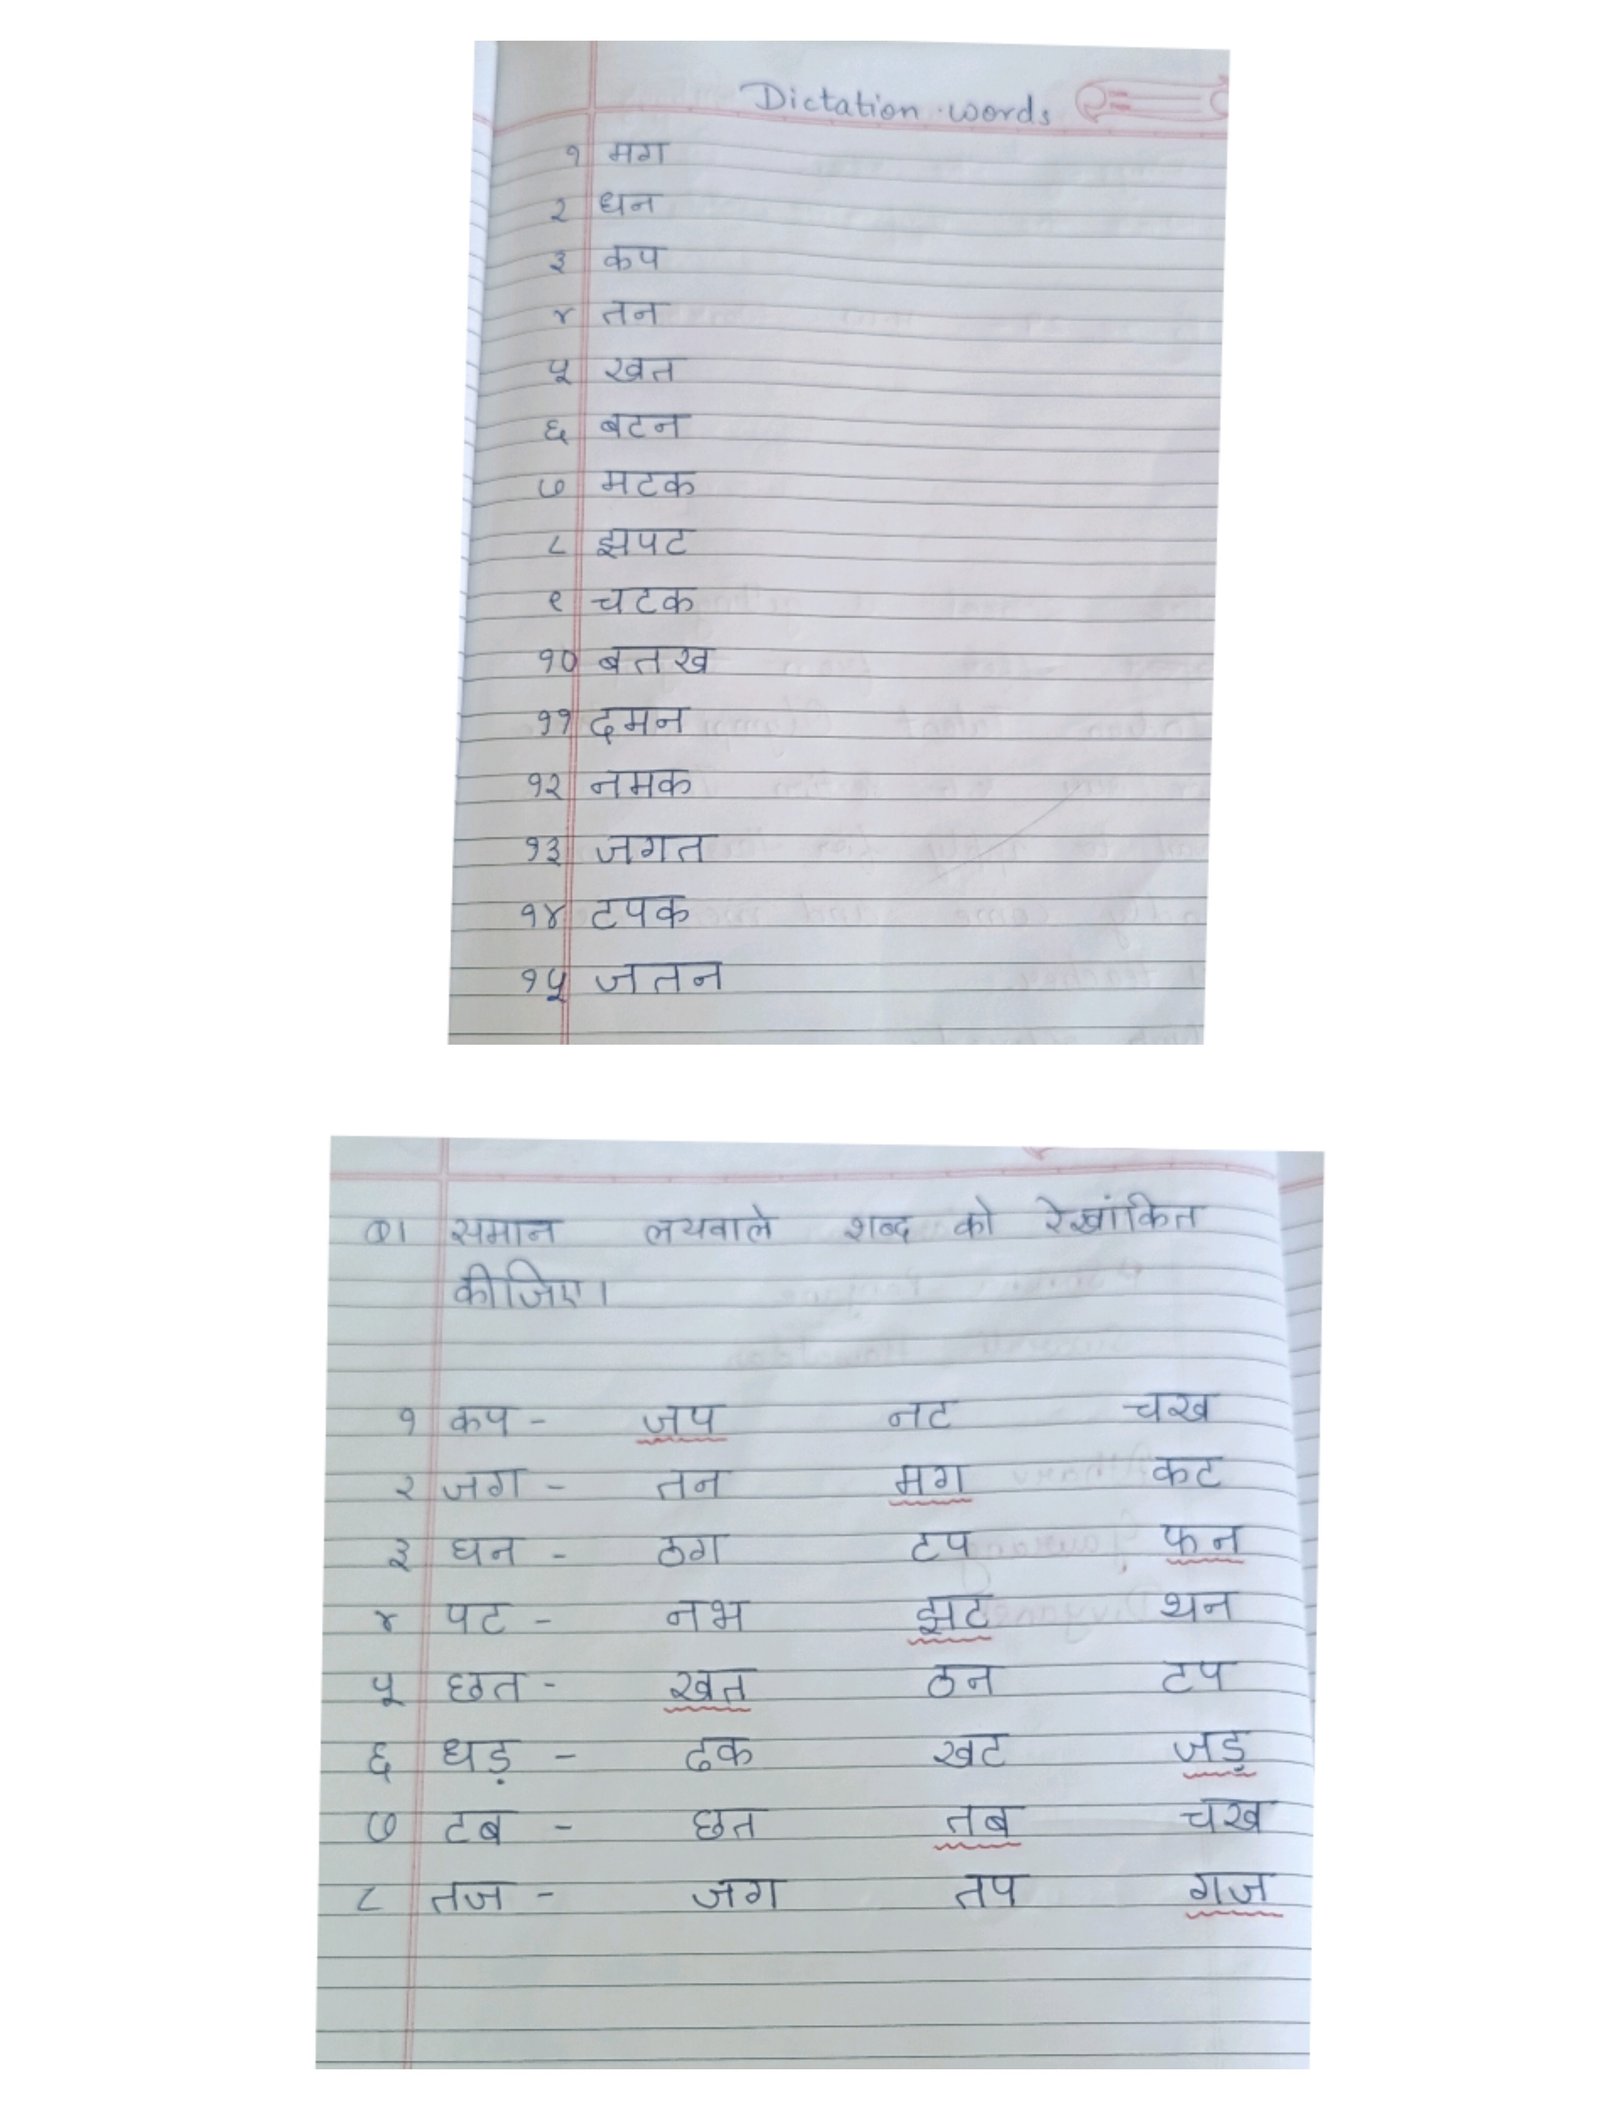 Dictation words
१ मग
२ धन
३ कप
४ तन
५ खत
६ बटन
७ मटक
८ झपट
९ चटक
१० बतख
११ दमन
१२ नमक
१३ जगत
१४ टपक
१५ जतन
Q1 समान लयवाले शब्द को रेखांकित
कीजिए।
१ कप - जप नट चख
२ जग - तन मग कट
३ धन - ठग टप फन
४ पट - नभ झट थन
५ छत - खत ठन टप
६ धड़ - ढक खट जड़
७ टब - छत तब चख
८ तज - जग तप गज